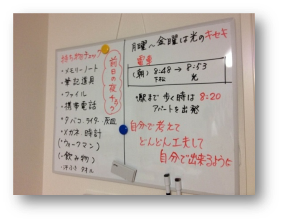 持ち物チェック
前日の夜やる
・メモリーノート
・筆記選具
・ファイル
・携帯電話
・タバコ、ライター、灰皿
・メガネ 時計
・(ウォークマン)
・(飲み物)
タオル
月曜～金曜は光のキセキ
電車
(朝) 8:48 → 8:53
下松 光
・駅まで歩く時は 8:20
アパートを出発
自分で考えて
どんどん工夫して
自分で出来るように